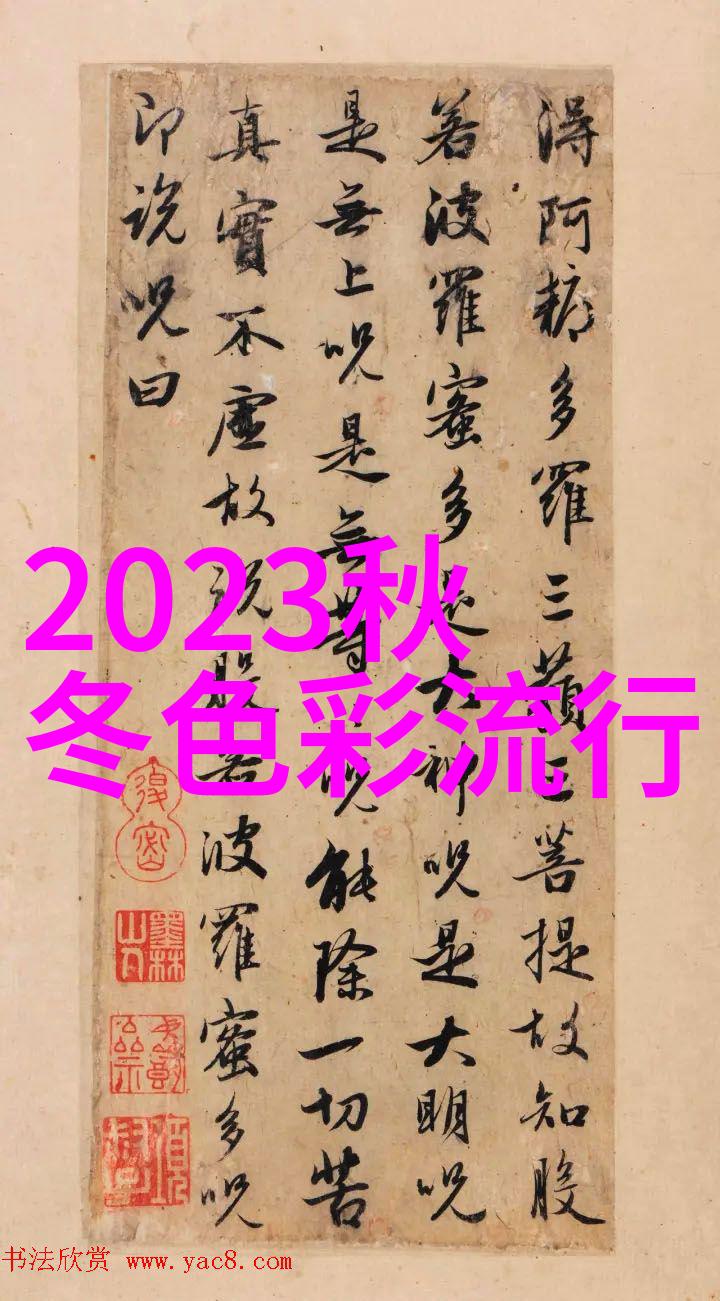 得阿耨多羅三藐三菩提故知般
若波羅蜜多是大神呪是大明呪
是無上呪是無等〻呪能除一切苦
真實不虛故說般若波羅蜜多呪
即說呪曰
2023秋
冬色彩流行
墨林山人
书法欣赏 www.yac8.com